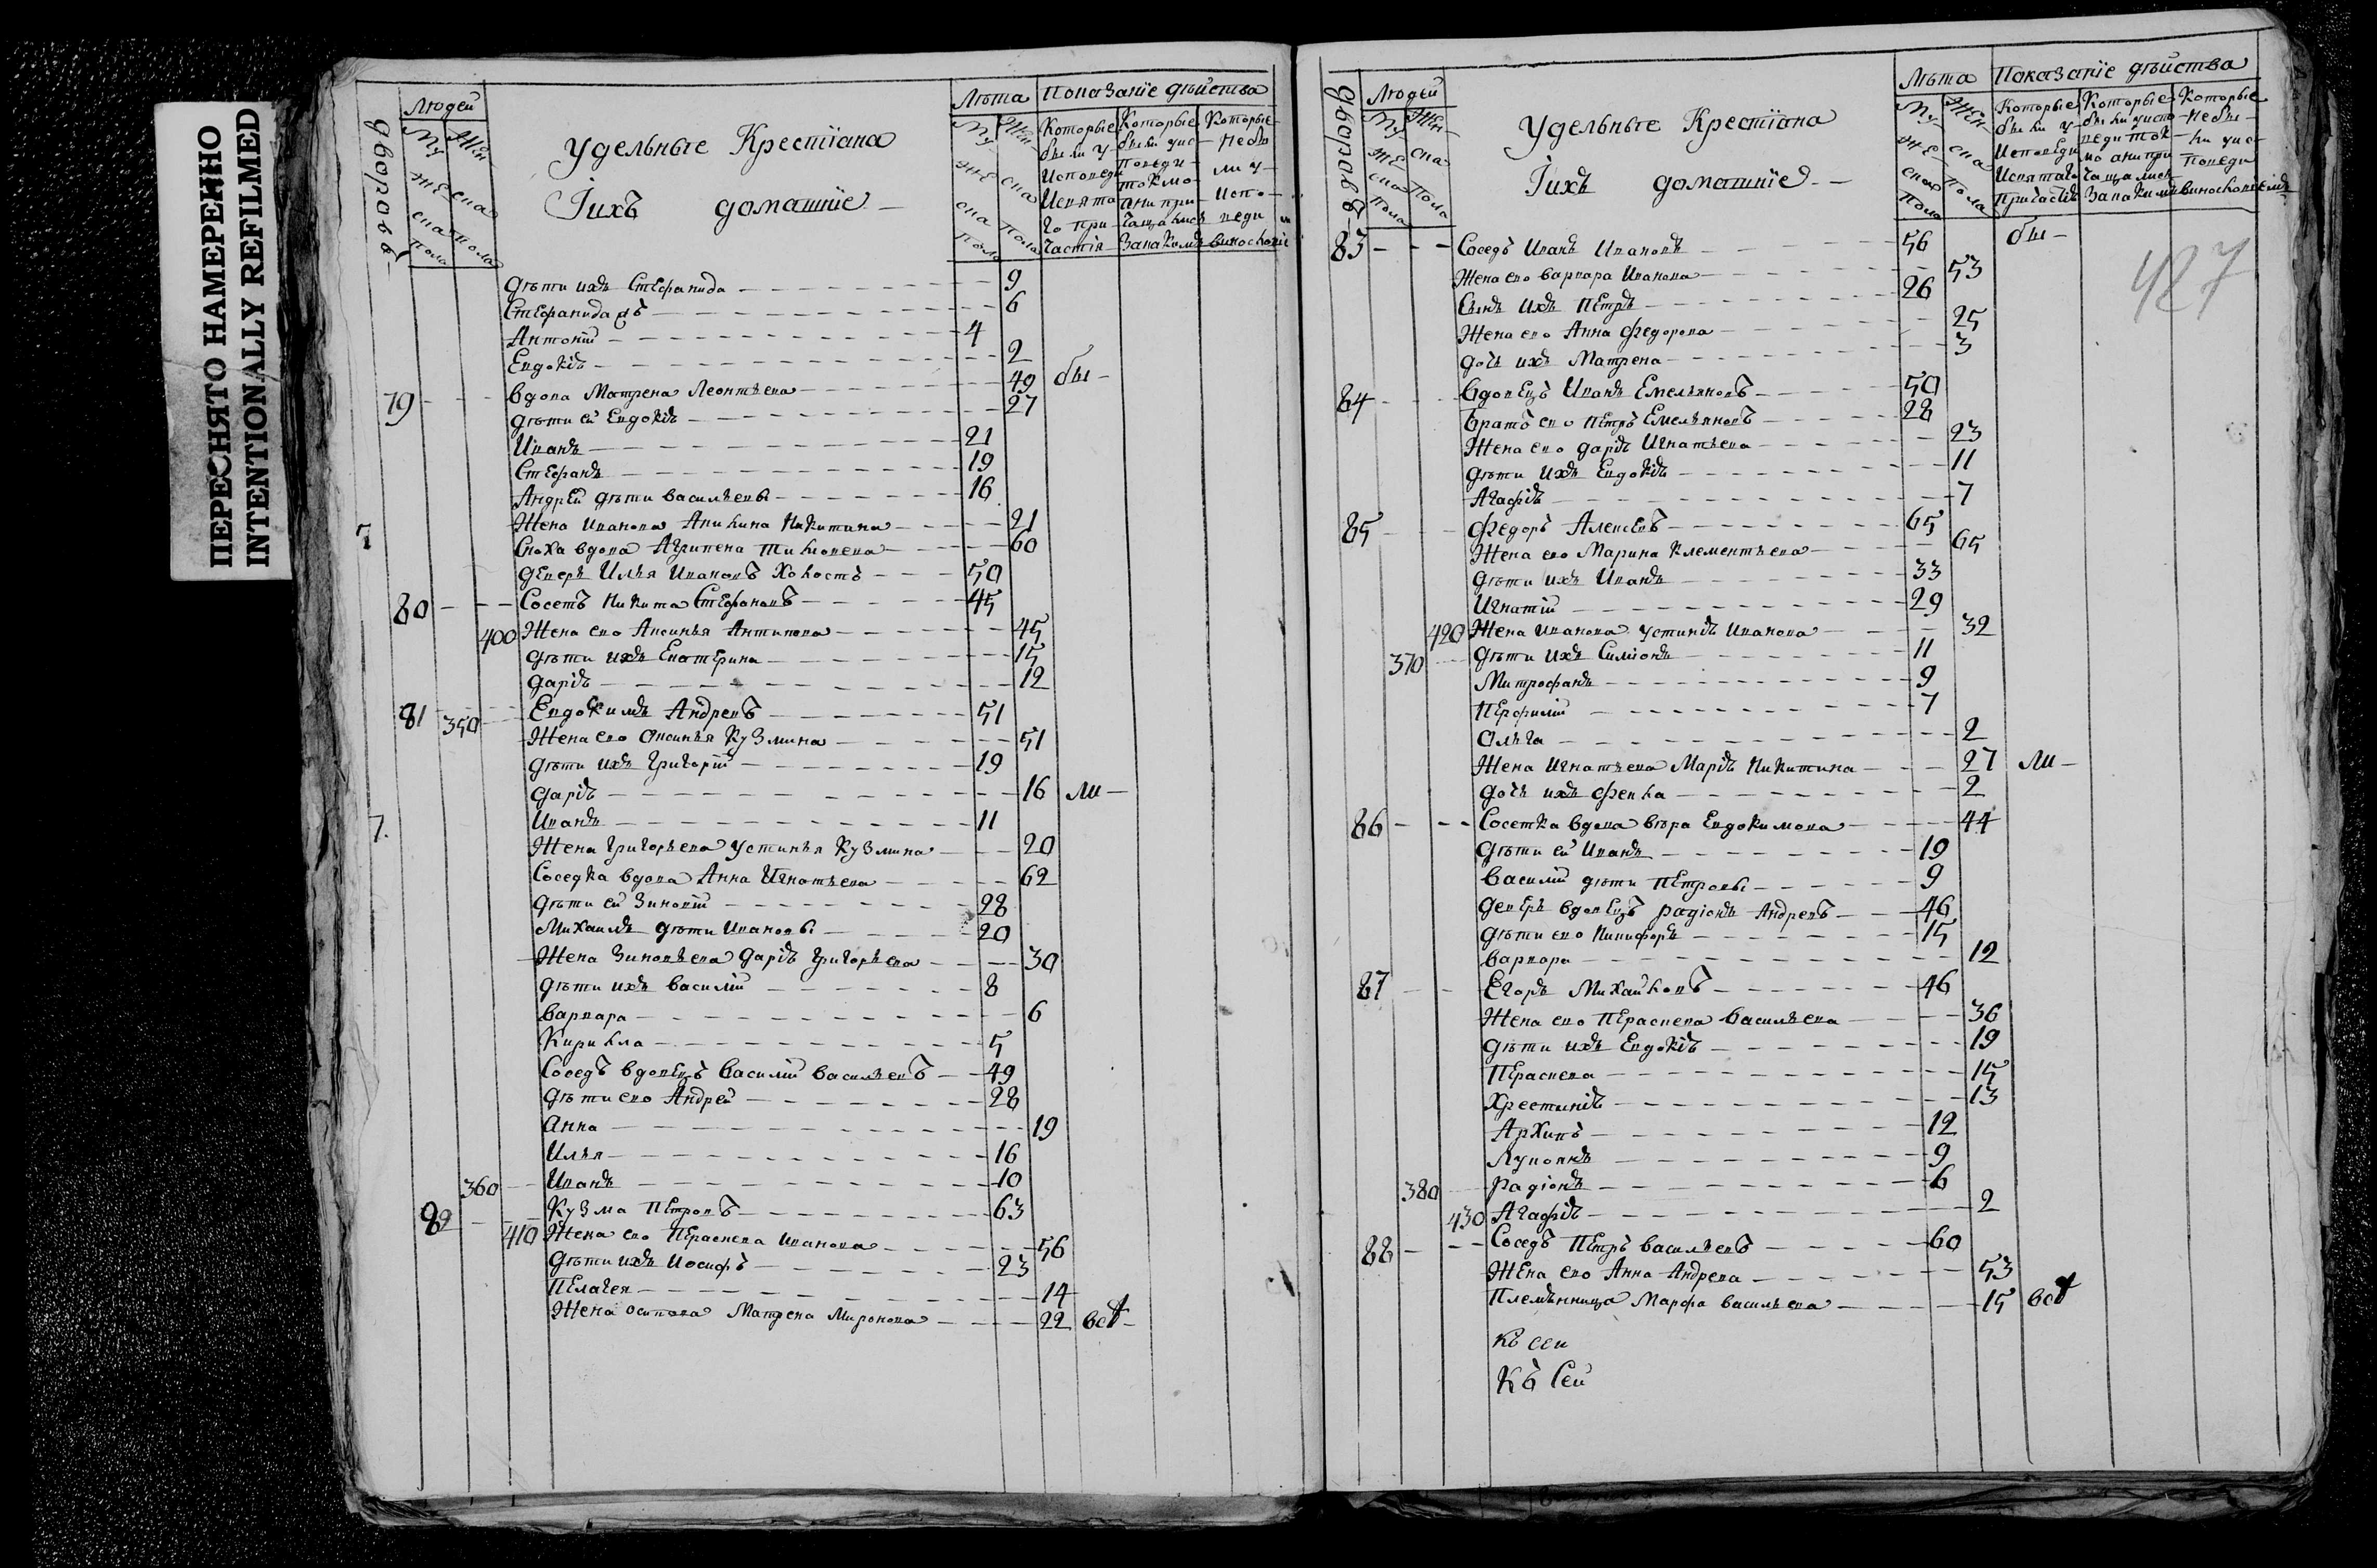 ПЕРЕСНЯТО НАМЕРЕННО
INTENTIONALLY REFILMED
дворовъ
Людей
Мужеска пола
Женска пола
Удельные Крестіана
Іихъ домашніе
Лѣта
Мужеска пола
Женска пола
Показаніе дѣйства
Которые были у исповеди и святаго причастія
Которые были у исповеди токмо а не причащались за каким винословіем
Которые не были у исповеди
дѣти ихъ Стефанида 9
Стефанида дъ 6
Антоній 4
Евдокіѣ 2
79 вдова Матрена Леонтьева 49 бы
дѣти ей Евдокіѣ 27
Иванъ 21
Стефанъ 19
Андрей дѣти васильевы 16
Жена Иванова Акилина Никитина 21
7 Сноха вдова Агрипена Тимофеева 60
деверь Илья Ивановъ холостъ 50
80 Сосетъ Никита Стефановъ 45
400 Жена ево Аксинья Антипова 45
дѣти ихъ Екатерина 15
дарiѣ 12
81 350 Евдокимъ Андревъ 51
Жена ево Аксинья Кузмина 51
дѣти ихъ Григорій 19
дарiѣ 16 ли
7. Иванъ 11
Жена Григорьева Устинья Кузмина 20
Соседка вдова Анна Игнатьева 62
дѣти ей Зиновій 28
Михаилъ дѣти Ивановы 20
Жена Зиновьева дарiѣ Григорьева 30
дѣти ихъ василій 8
варвара 6
Кирилла 5
Соседъ вдовецъ Василій васильевъ 49
дѣти ево Андрей 28
Анна 19
Илья 16
360 Иванъ 10
82 Кузма Петровъ 63
410 Жена ево Пераскева Иванова 56
дѣти ихъ Иосифъ 23
Пелагея 14
Жена осипова Матрена Миронова 22 всѣ
дворовъ
Людей
Мужеска пола
Женска пола
Удельные Крестіана
Іихъ домашніе
Лѣта
Мужеска пола
Женска пола
Показаніе дѣйства
Которые были у Исповеди И святаго Причастія
Которые были у исповеди токмо а не причащались За каким винословіемъ
Которые не были у исповеди
427
83 Соседъ Иванъ Ивановъ 56 бы
Жена ево варвара Иванова 53
Сынъ ихъ Петръ 26
Жена ево Анна Федорова 25
дочь ихъ Матрена 3
84 вдовецъ Иванъ Емельяновъ 50
братъ ево Петръ Емельяновъ 28
Жена ево дарiѣ Игнатьева 23
дѣти Ихъ Евдокіѣ 11
Агафіѣ 7
85 Федоръ Алексевъ 65
Жена ево Марина Клементьева 65
дѣти ихъ Иванъ 33
Игнатій 29
420 Жена Иванова Устиніѣ Иванова 32
370 дѣти Ихъ Симіонъ 11
Митрофанъ 9
Перфилій 7
Ольга 2
Жена Игнатьева Маріѣ Никитина 27 ли
дочь ихъ Фекла 2
86 Сосетка вдова вѣра Евдокимова 44
дѣти ей Иванъ 19
Василій дѣти Петровы 9
деверь вдовецъ Радіонъ Андревъ 46
дѣти ево Никифоръ 15
варвара 12
87 Егоръ Михайловъ 46
Жена ево Пераскева васильева 36
дѣти ихъ Евдокіѣ 19
Пераскева 15
Хрестиніѣ 13
Архипъ 12
Лупонъ 9
380 Радіонъ 6
430 Агафіѣ 2
88 Соседъ Петръ васильевъ 60
Жена ево Анна Андрева 53
Племѣнница Марфа васильева 15 всѣ
Къ сеи
Къ Сей